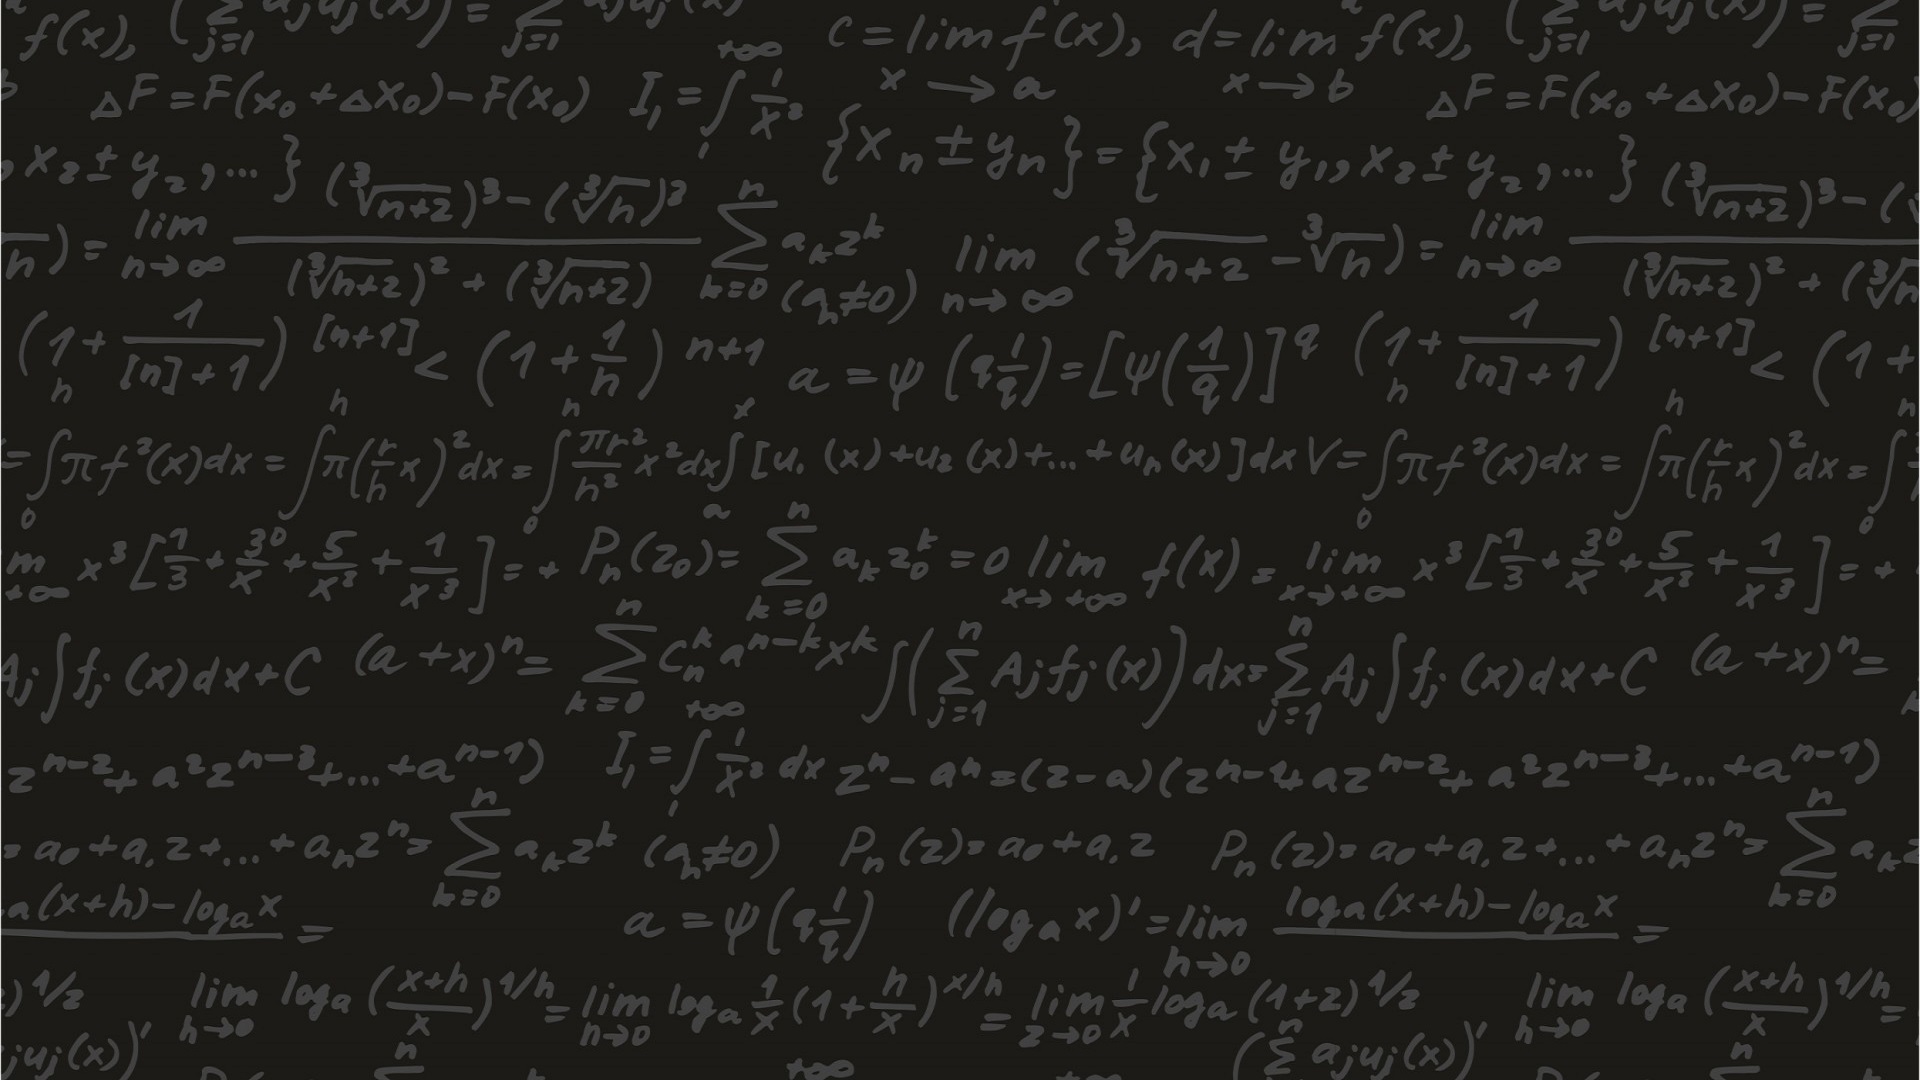 f(x), (∑_{j=1} a_j u_j (x)) = ∑_{j=1} a_j u_j (x) c = lim_{x→a} f(x), d = lim_{x→b} f(x), (∑_{j=1} a_j u_j (x)) = ∑_{j=1}
b ΔF = F(x₀ + Δx₀) − F(x₀) I₁ = ∫_1^{+∞} 1/x² ΔF = F(x₀ + Δx₀) − F(x₀)
, x₂ ± y₂, ... } {x_n ± y_n} = {x₁ ± y₁, x₂ ± y₂, ... }
n) = lim_{n→∞} ((∛(n+2))³ − (∛n)³) / ((∛(n+2))² + (∛(n+2)) ∑_{k=0}^{n} a_k z^k (a_n ≠ 0) lim_{n→∞} (∛(n+2) − ∛n) = lim_{n→∞} (∛(n+2))³ − ( / (∛(n+2))² + (∛n
(1 + 1/([n]+1))^{[n+1]} < (1 + 1/n)^{n+1} a = ψ(q 1/q) = [ψ(1/q)]^q (1 + 1/([n]+1))^{[n+1]} < (1 +
= ∫_0^h πf²(x)dx = ∫^h π(r/h x)² dx = ∫_0^n πr²/h² x² dx ∫_a^x [u₁ (x) + u₂ (x) + ... + u_n (x)]dx V = ∫_0^h πf²(x)dx = ∫^h π(r/h x)² dx = ∫_0^n
m_{+∞} x³ [1/3 + 30/x + 5/x² + 1/x³] = + P_n(z₀) = ∑_{k=0}^{n} a_k z₀^k = 0 lim_{x→+∞} f(x) = lim_{x→+∞} x³ [1/3 + 30/x + 5/x² + 1/x³] = +
A_j ∫ f_j (x)dx + C (a + x)^n = ∑_{k=0}^{n} C_n^k a^{n−k} x^k ∫(∑_{j=1}^{n} A_j f_j (x)) dx = ∑_{j=1}^{n} A_j ∫ f_j (x)dx + C (a + x)^n =
z^{n−2} + a² z^{n−3} + ... + a^{n−1}) I₁ = ∫_1^{+∞} 1/x² dx z^n − a^n = (z − a)(z^{n−1} + az^{n−2} + a² z^{n−3} + ... + a^{n−1})
= a₀ + a₁ z + ... + a_n z^n = ∑_{k=0}^{n} a_k z^k (a_n ≠ 0) P_n (z) = a₀ + a₁ z P_n (z) = a₀ + a₁ z + ... + a_n z^n = ∑_{k=0}^{n} a_k z
a(x+h) − log_a x = a = ψ(q 1/q) (log_a x)' = lim_{h→0} log_a(x+h) − log_a x =
)^{1/2} lim_{h→0} log_a ((x+h)/x)^{1/h} = lim_{n→0} log_a 1/x (1 + h/x)^{x/h} = lim_{z→0} 1/x log_a (1+z)^{1/z} lim_{h→0} log_a ((x+h)/x)^{1/h} =
_j u_j (x))' n +∞ (∑^{n} a_j u_j (x))' n